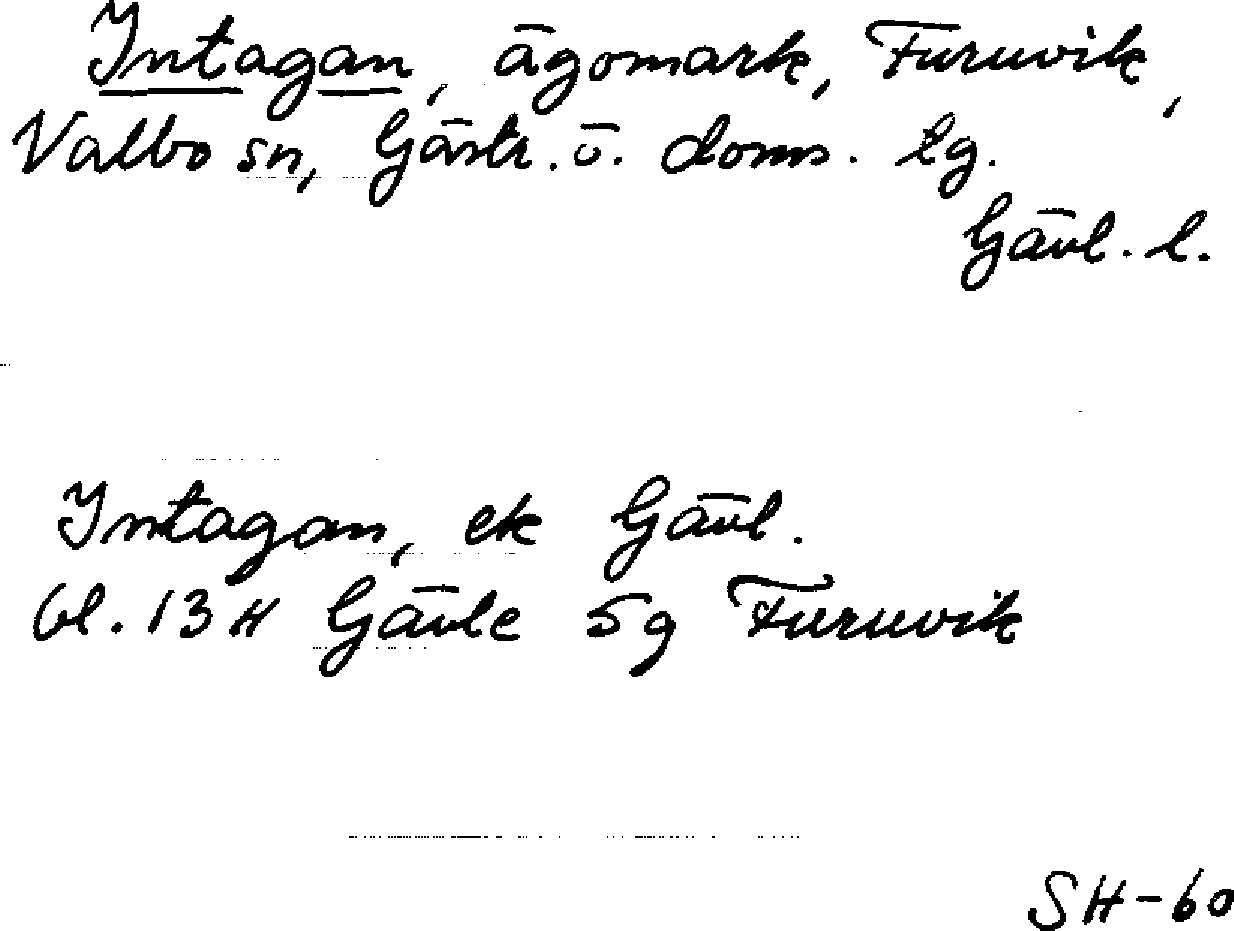 Intagan, ägomark, Furuvik,
Valbo sn, Gästr. ö. doms. lg.
Gävl. l.
Intagan, ek Gävl.
bl. 13 H Gävle 5g Furuvik
SH-60